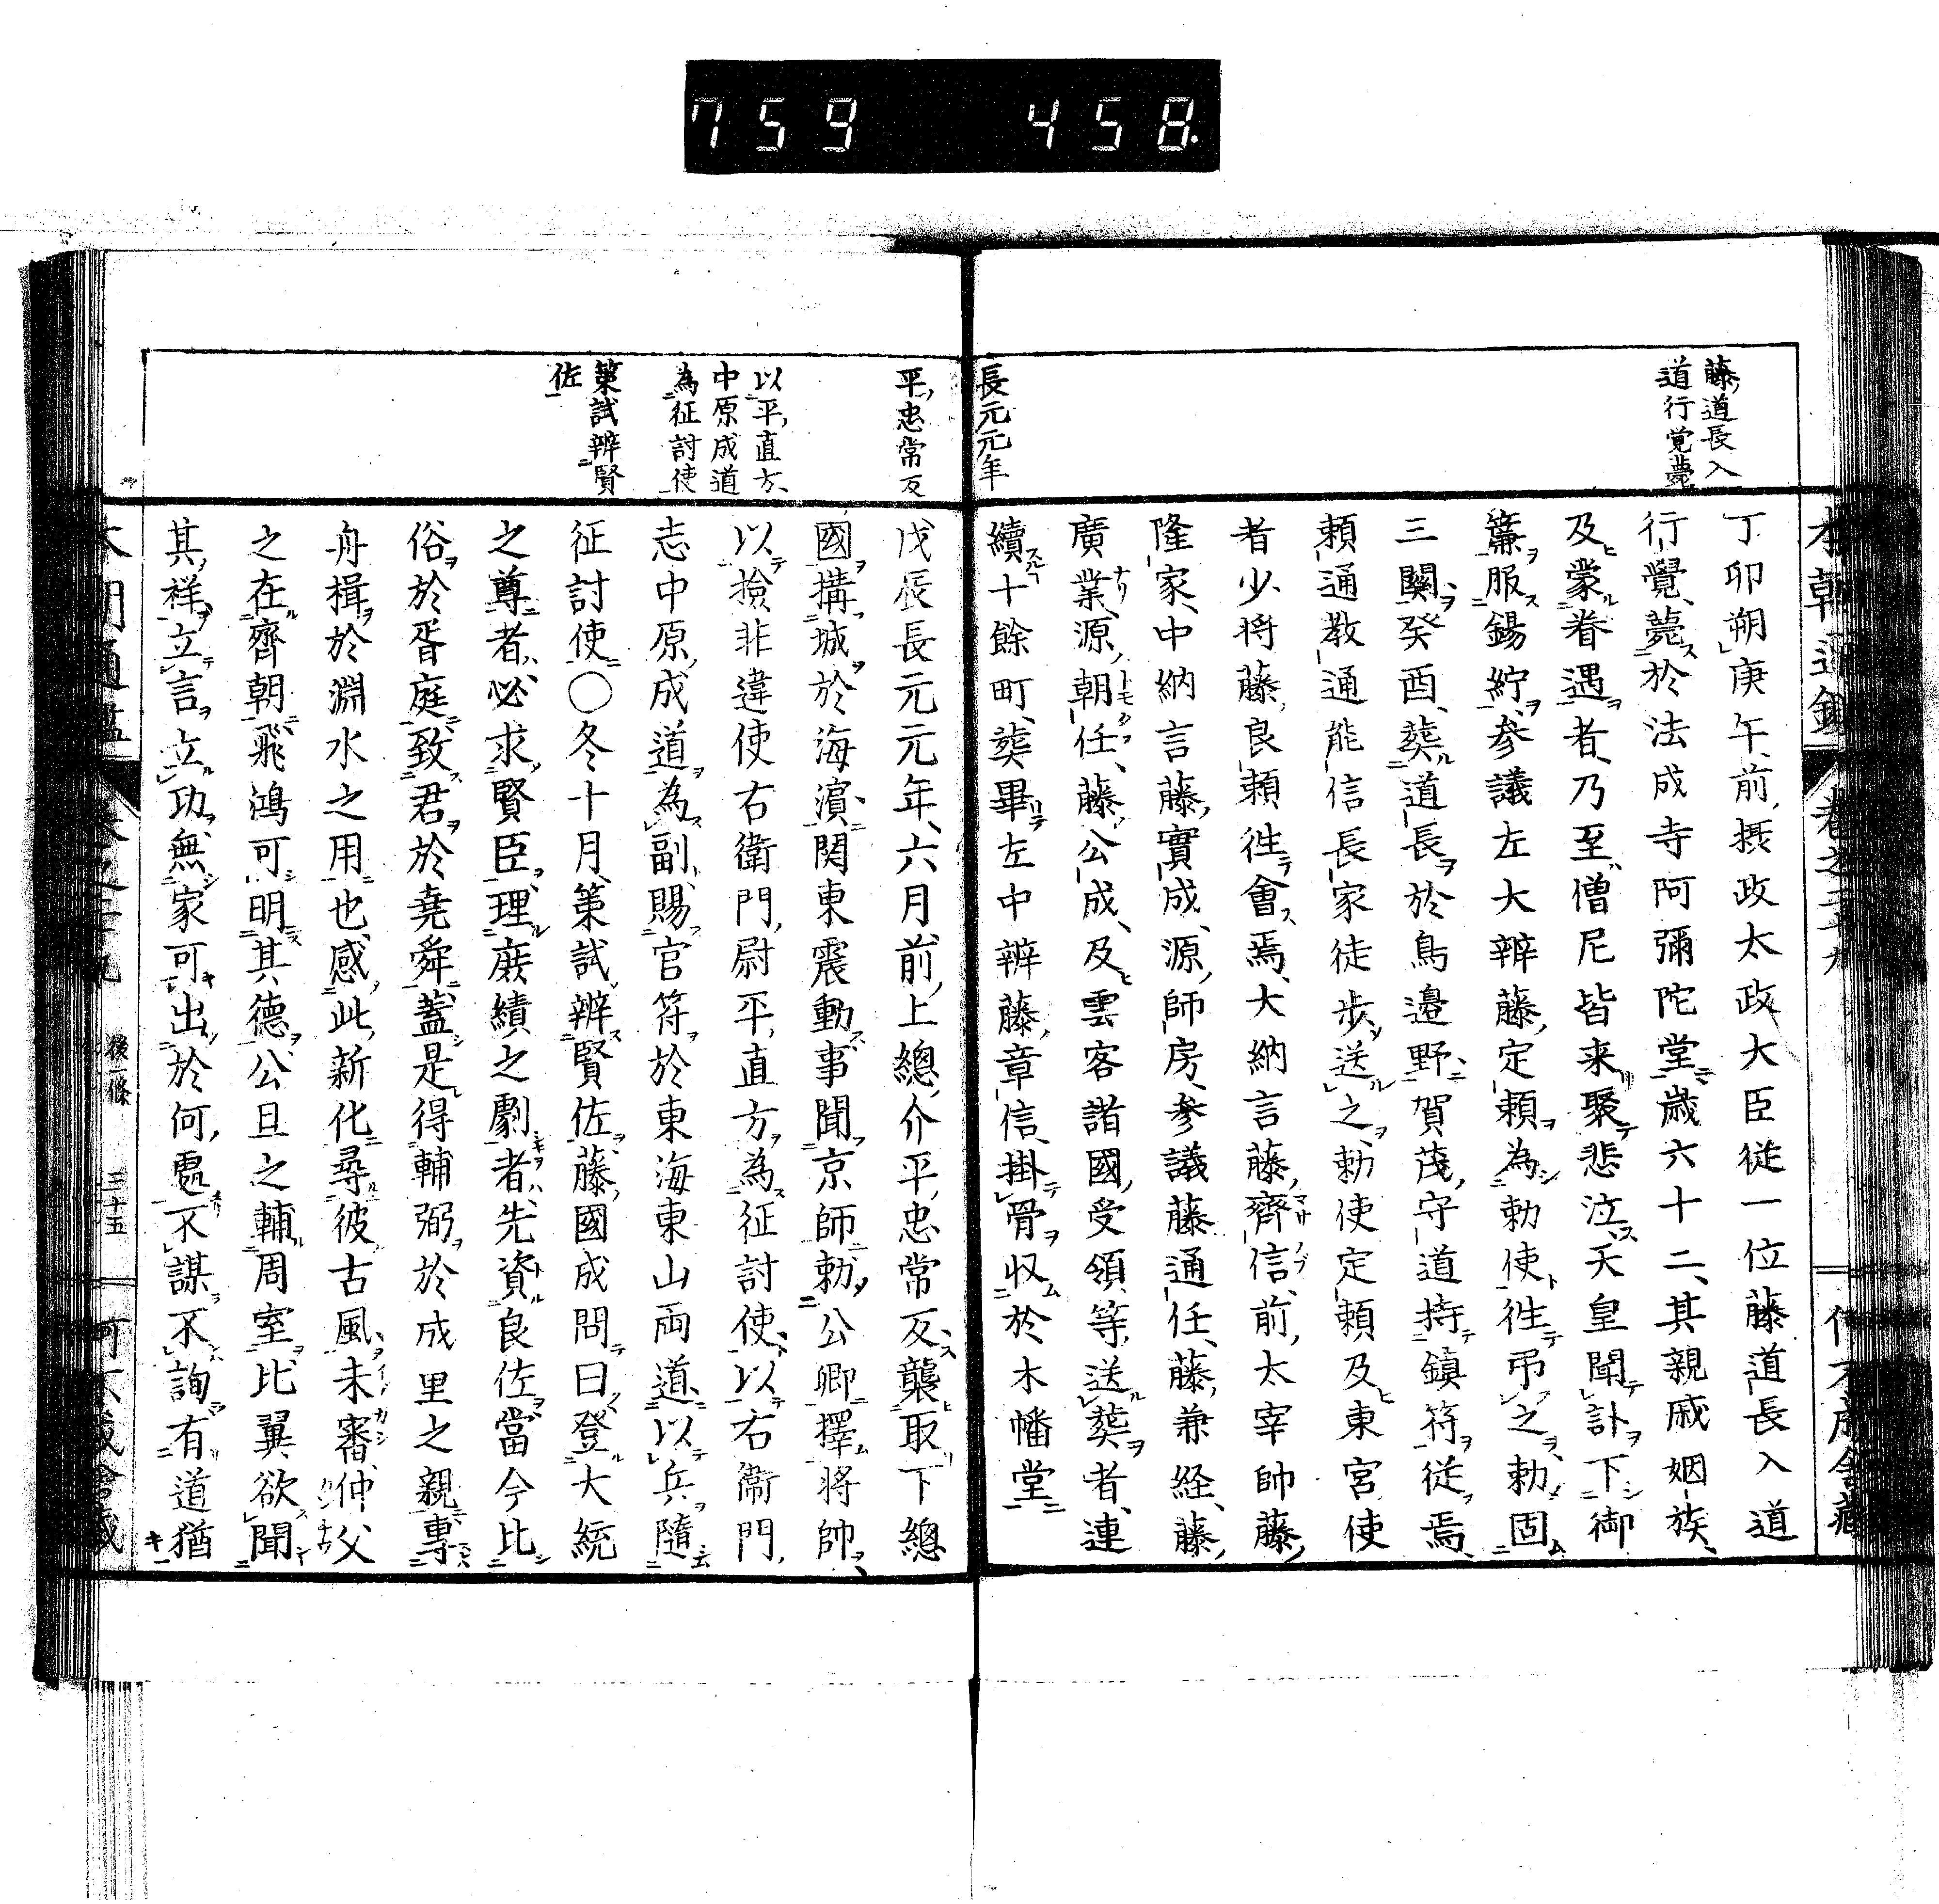 759 458.
藤道長入
道行覚薨
丁卯朔庚午、前摂政太政大臣従一位藤道長入道
行覺、薨於法成寺阿彌陀堂歳六十二、其親戚姻族、
及蒙眷遇者、乃至僧尼皆来聚悲泣、天皇聞訃下御
簾服錫紵、参議左大辨藤定頼為勅使徃弔之、勅固
三關癸酉、葬道長於鳥邉野賀茂守道持鎮符従焉、
頼通教通能信長家徒歩送之、勅使定頼及東宮使
者少将藤良頼徃會焉、大納言藤齊信、前太宰帥藤
隆家、中納言藤實成、源師房、参議藤通任、藤兼経、藤
廣業、源朝任、藤公成、及雲客諸國受領等送葬者、連
續十餘町、葬畢左中辨藤章信、掛骨収於木幡堂
長元元年
平忠常反
以平直方、
中原成道
為征討使
策試辨賢
佐
戊辰長元元年、六月、前上總介平忠常反、襲取下總
國、搆城於海濵、関東震動、事聞京師勅公卿擇将帥、
以撿非違使右衛門尉平直方為征討使、以右衞門
志中原成道為副、賜官符於東海東山両道以兵隨
征討使〇冬十月、策試辨賢佐、藤國成問曰、登大統
之尊者、必求賢臣、理庶績之劇者、先資良佐、當今比
俗於胥庭、致君於堯舜、蓋是得輔弼於成里之親、專
舟楫於淵水之用也、感此新化尋彼古風、未審、仲父
之在齊朝、飛鴻可明其德、公旦之輔周室、比翼欲聞
其祥、立言立功、無家可出於何處、不謀不詢、有道猶
後一條 三十五